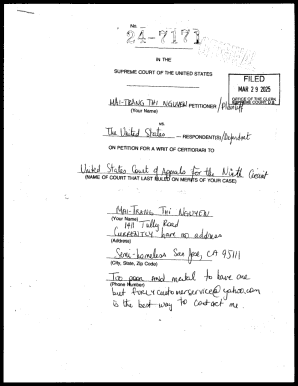 No.
24-7171
IN THE
SUPREME COURT OF THE UNITED STATES
FILED
MAR 29 2025
OFFICE OF THE CLERK
SUPREME COURT, U.S.
MAI-TRANG THI NGUYEN PETITIONER / Plaintiff
(Your Name)
vs.
The United States — RESPONDENT(S) / Defendant
ON PETITION FOR A WRIT OF CERTIORARI TO
United States Court of Appeals for the Ninth Circuit
(NAME OF COURT THAT LAST RULED ON MERITS OF YOUR CASE)
MAI-TRANG THI NGUYEN
(Your Name)
1411 Tully Road
CURRENTLY have no address
(Address)
Semi-homeless San Jose, CA 95111
(City, State, Zip Code)
Too poor and mental to have one
(Phone Number)
but customerservice@yahoo.com
is the best way to contact me.